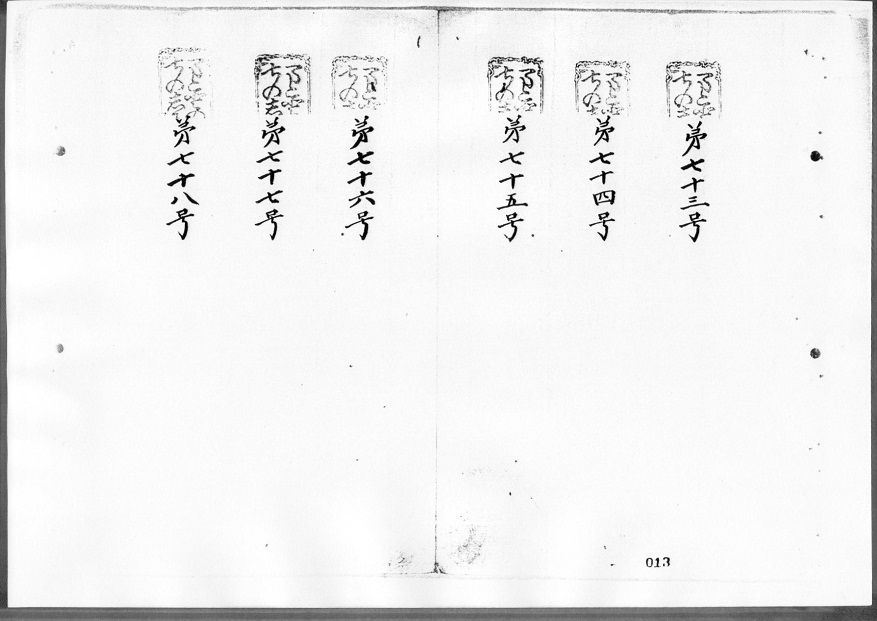 第七十三号
第七十四号
第七十五号
第七十六号
第七十七号
第七十八号
013